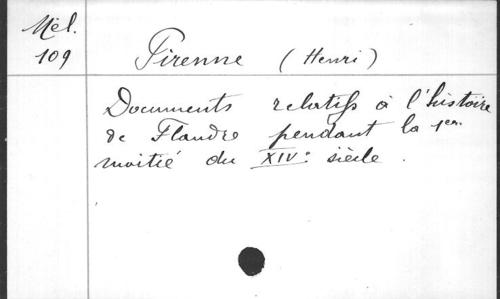 Mél.
109
Pirenne (Henri)
Documents relatifs à l'histoire
de Flandre pendant la 1er.
moitié du XIVe siècle.